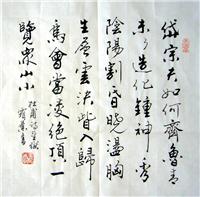 岱宗夫如何齊魯青
未了造化鍾神秀
陰陽割昏曉蕩胸
生層雲決眥入歸
鳥會當凌絕頂一
覽衆山小
杜甫詩望嶽
書